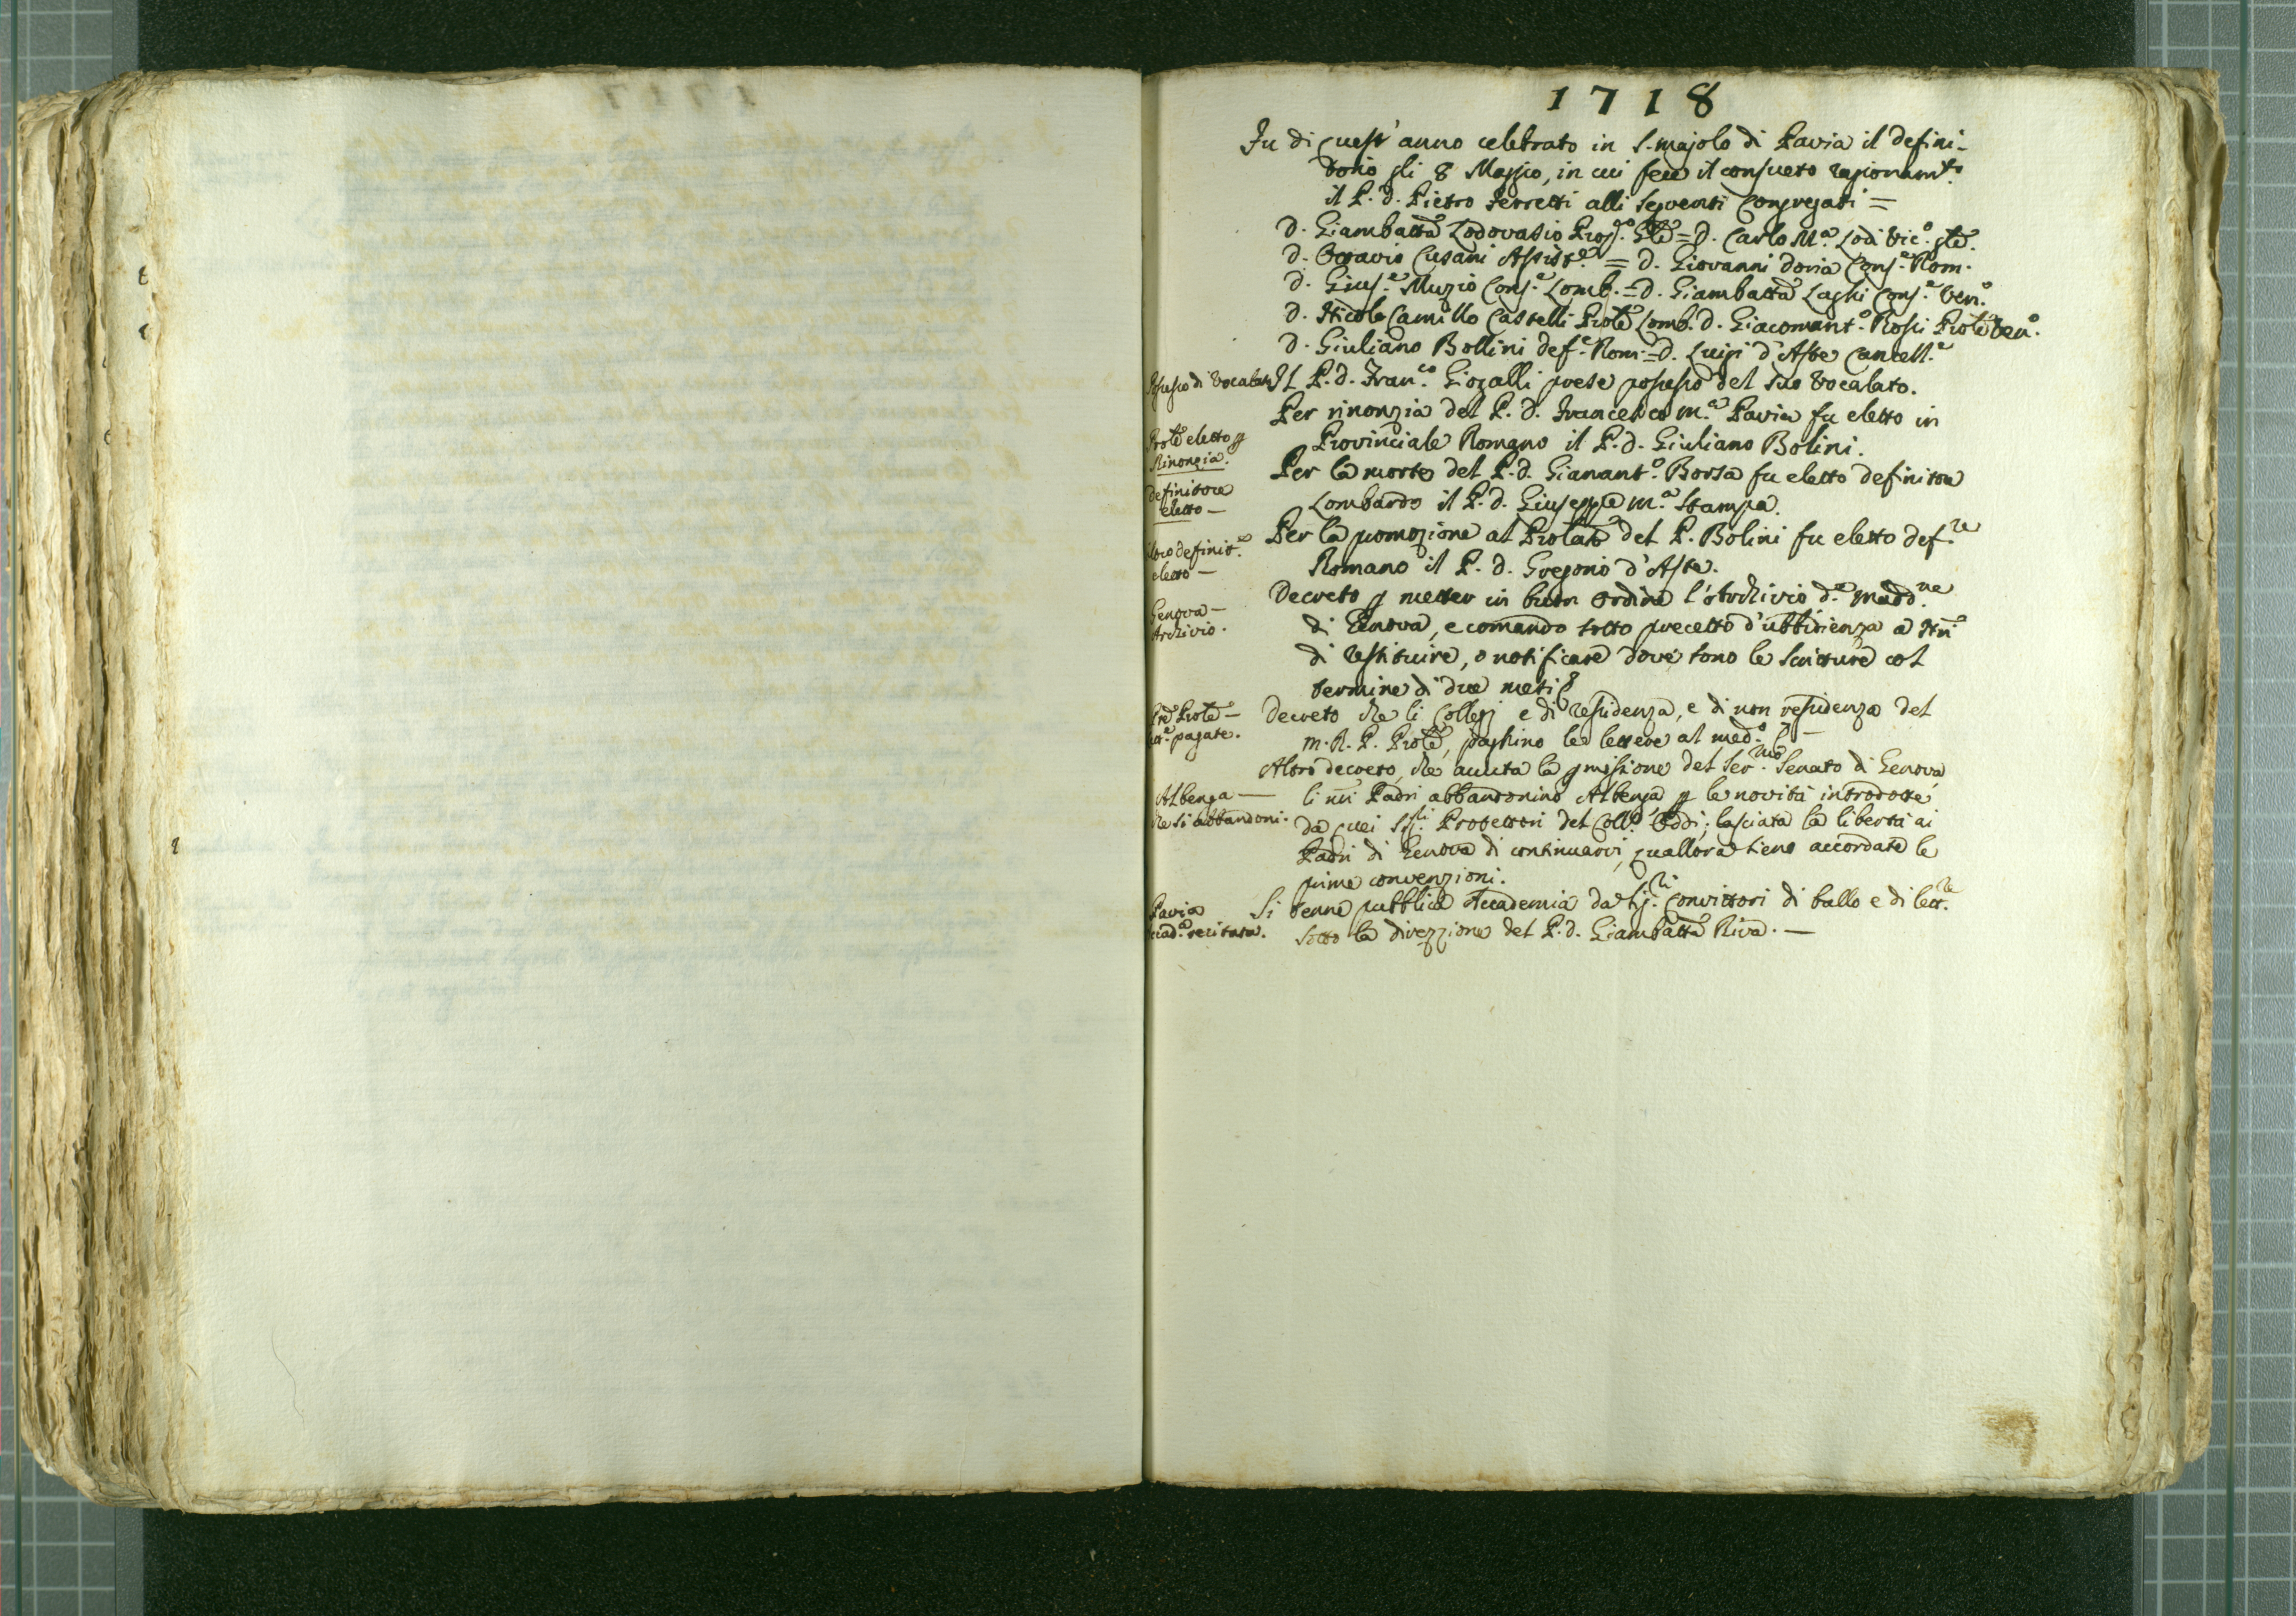 1718
Fu di quest'anno celebrato in S. Majolo di Pavia il defini-
torio gli 8 Maggio, in cui fece il consueto ragionam.to
il P. D. Pietro Ferretti alli seguenti Congregati =
D. Giambatta Lodovasio Gle = D. Carlo M.a Lodi Vic.o gle.
D. Ottavio Cusani Assist.e = D. Giovanni Doria Cons.e Rom.
D. Gius.e Muzio Cons.e Lomb. = D. Giambatta Laghi Cons.e Ven.o
D. Nicola Camillo Castelli Prole Lomb. D. Giacomant.o Rossi Prole Ven.o
D. Giuliano Bollini def.e Rom. = D. Luigi d'Aste Cancell.e
Possesso di Vocalato
Il P. D. Fran.co Giozalli prese possesso del suo Vocalato.
Prole eletto p
Rinonzia.
Per rinonzia del P. D. Francesco M.a Pavia fu eletto in
Provinciale Romano il P. D. Giuliano Bolini.
definitore
eletto —
Per la morte del P. D. Gianant.o Borsa fu eletto definitore
Lombardo il P. D. Giuseppe M.a Stampa.
altro definit.e
eletto —
Per la promozione al Prolato del P. Bolini fu eletto def.re
Romano il P. D. Gregorio d'Aste.
Genova —
Archivio.
Decreto p metter in buon ordine l'Archivio d.a Madd.ne
di Genova, e comando sotto precetto d'ubbidienza a Nri
di restituire, o notificare dove sono le scritture col
termine di due mesi
Pre Prole —
lett.e pagate.
Decreto che li Collegj e di residenza, e di non residenza del
M. R. P. Prole, paghino le lettere al med.o
Albenga —
che si abbandoni.
Altro decreto, che avuta la pmissione del Ser.mo Senato di Genova
li nri Padri abbandonino Albenga p le novità introdotte
da quei Sig.li Protettori del Coll.o Oddi; lasciata la libertà ai
Padri di Genova di continuarvi, quallora sieno accordate le
prime convenzioni.
Pavia
Accad.a recitata.
Si tenne pubblica Accademia da Sig.ri Convittori di ballo e di lett.re
sotto la direzzione del P. D. Giambatta Riva. —